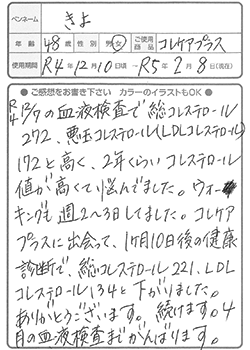 ペンネーム きよ
年齢 48歳 性別 男・女 ご使用商品 コレケアプラス
使用期間 R4年12月10日頃 → R5年2月8日(現在)
●ご感想をお書き下さい カラーのイラストもOK●
R4 12/7の血液検査で総コレステロール
272、悪玉コレステロール(LDLコレステロール)
192と高く、2年くらいコレステロール
値が高くて悩んでました。ウォー
キングも週2〜3日してました。コレケア
プラスに出会って、1ヶ月10日後の健康
診断で、総コレステロール221、LDL
コレステロール134と下がりました。
ありがとうございます。続けます。4
月の血液検査までがんばります。